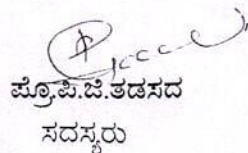 ಪ್ರೊ.ಪಿ.ಜಿ.ತಡಸದ
ಸದಸ್ಯರು